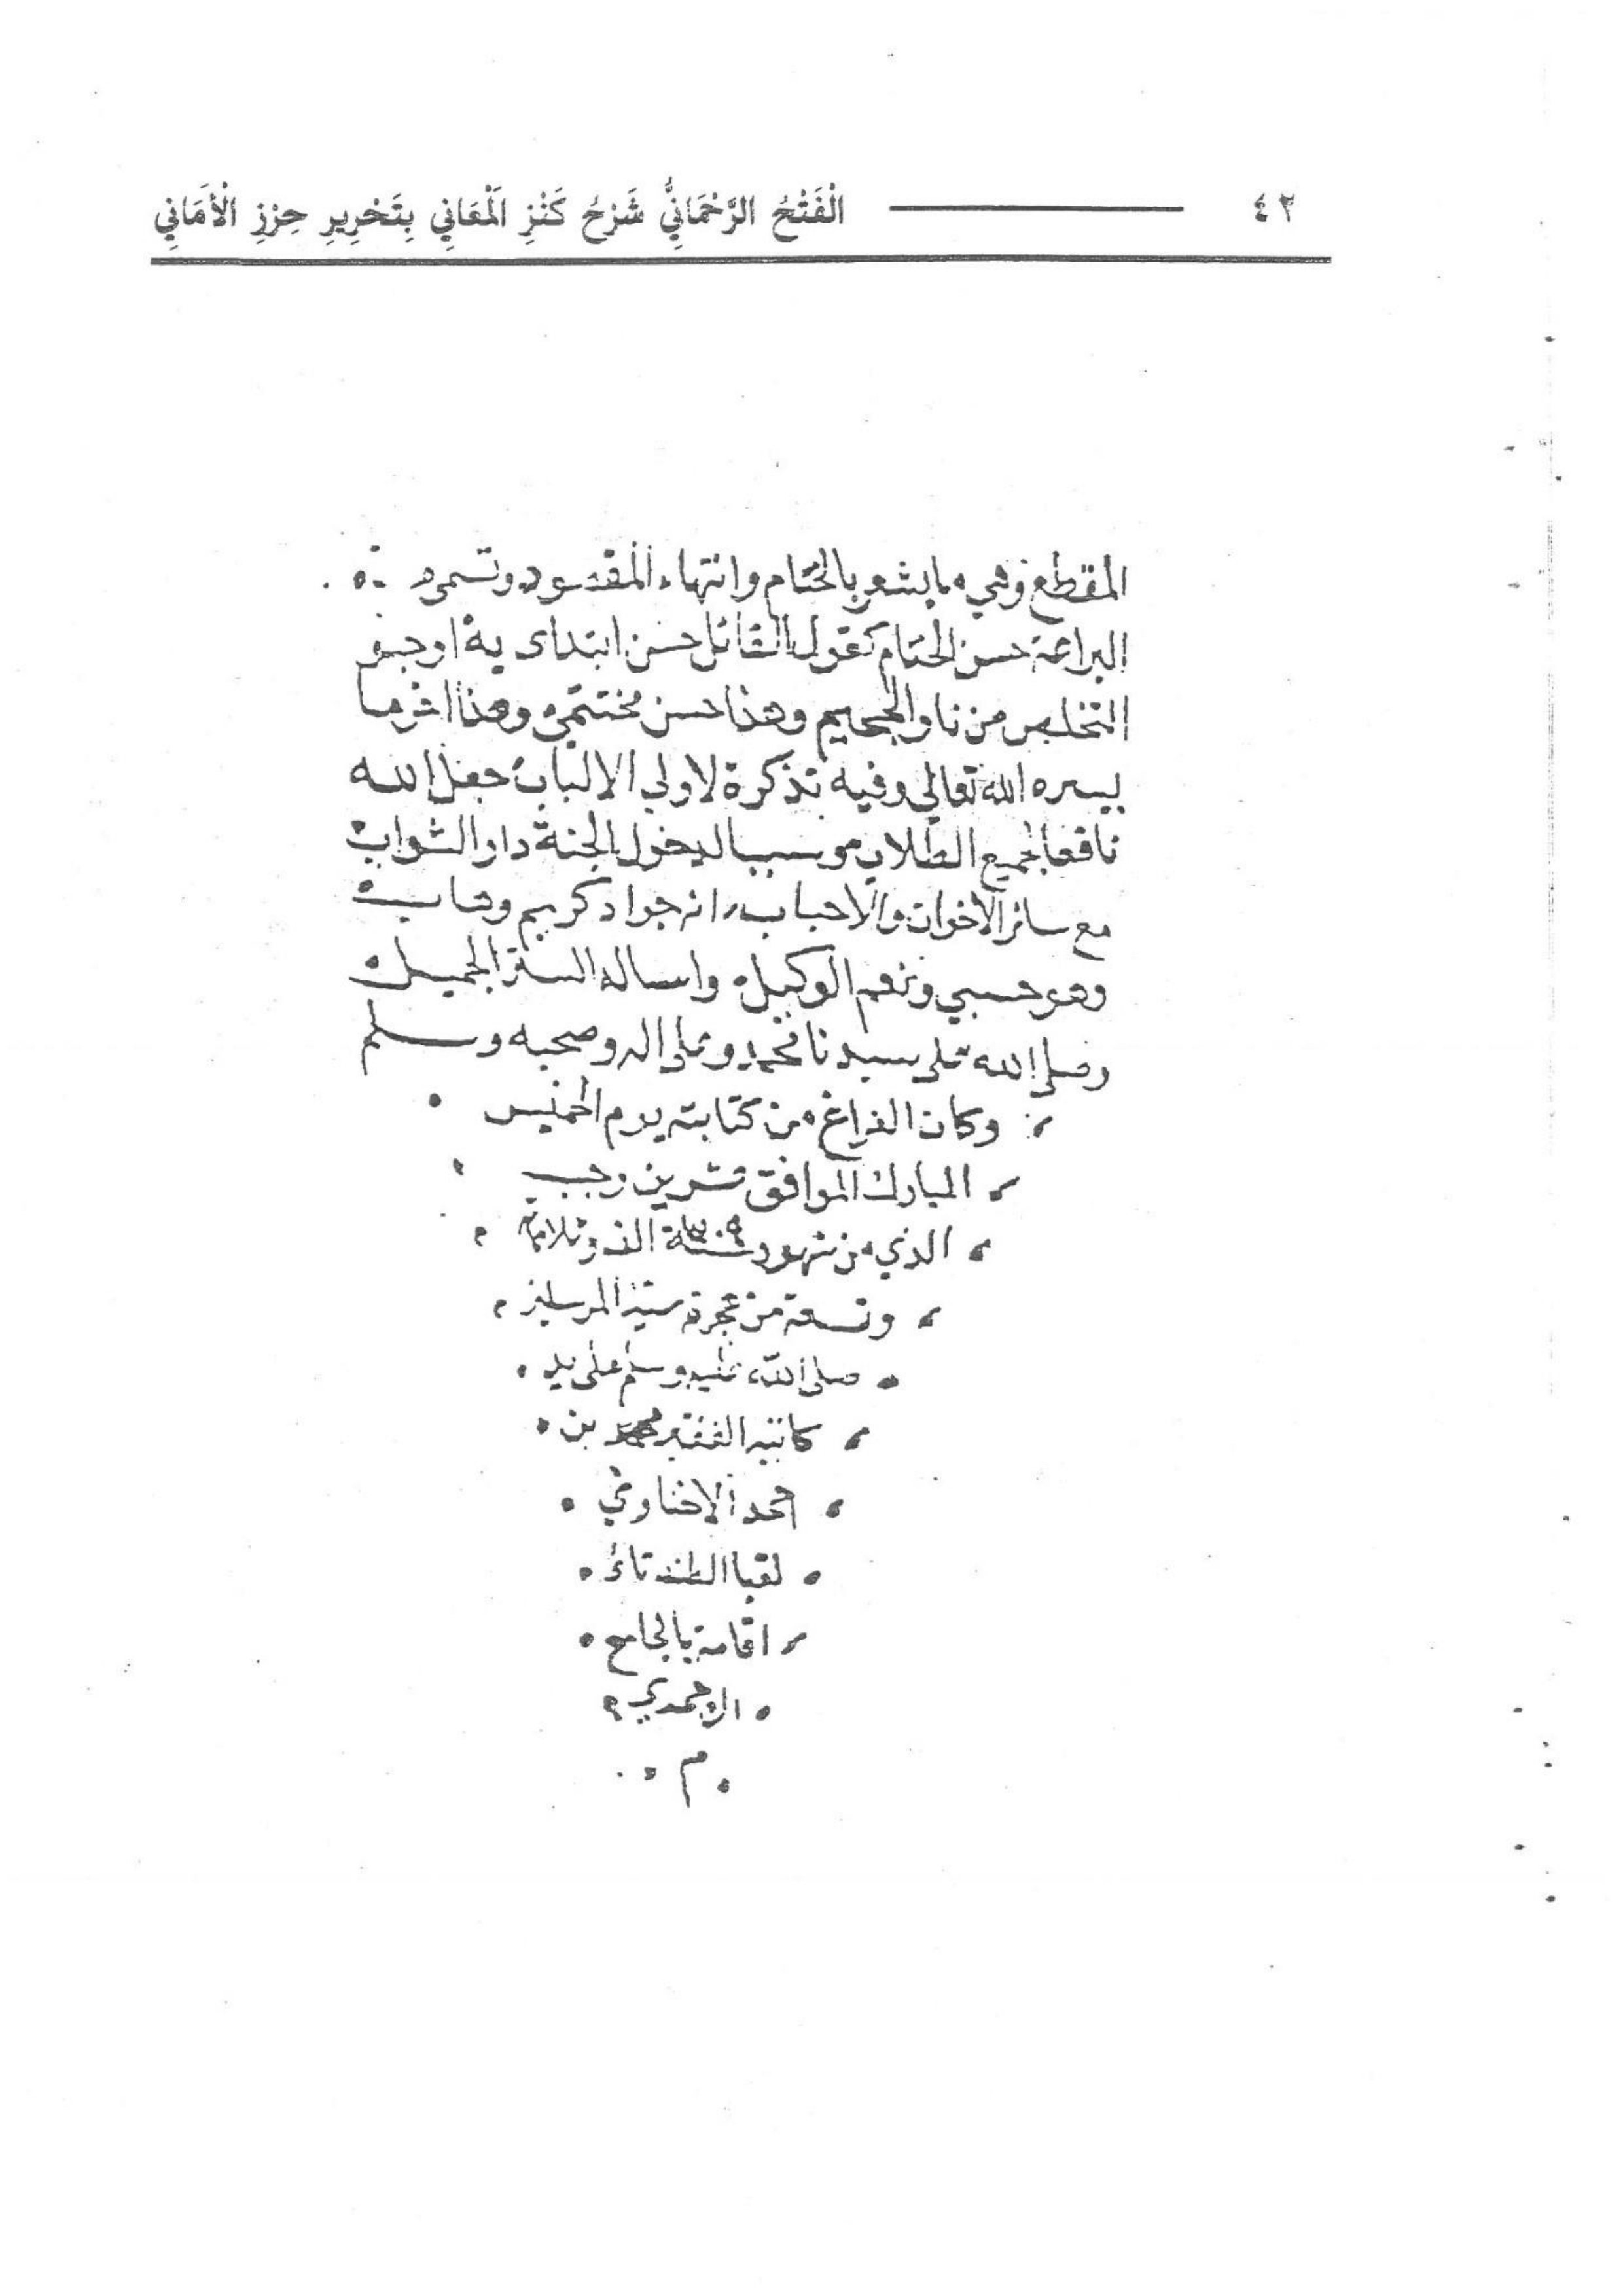 ٤٢ الْفَتْحُ الرَّحْمَانِيُّ شَرْحُ كَنْزِ الْمَعَانِي بِتَحْرِيرِ حِرْزِ الْأَمَانِي
المقطع وهي ما يشعر بالختام وانتهاء المقصود وتسمى
البراعة حسن الختام كقول القائل حسن ابتداى به ارجو
التخلص من نار الجحيم وهذا حسن مختتمي وهذا اخر ما
يسره الله تعالى وفيه تذكرة لاولي الالباب جعل الله
نافعا لجميع الطلاب وسببا لدخول الجنة دار الثواب
مع سائر الاخوان والاحباب انه جواد كريم وهاب
وهو حسبي ونعم الوكيل واساله الستر الجميل
وصلى الله على سيدنا محمد وعلى اله وصحبه وسلم
وكان الفراغ من كتابته يوم الخميس
المبارك الموافق عشرين رجب
الذي من شهور سنة ١٣٠٩ الف وثلاثماية
وتسعة من هجرة سيد المرسلين
صلى الله عليه وسلم على يد
كاتبه الفقير محمد بن
احمد الاخناوي
لقبا الطندتائي
اقامة بالجامع
الاحمدي
م